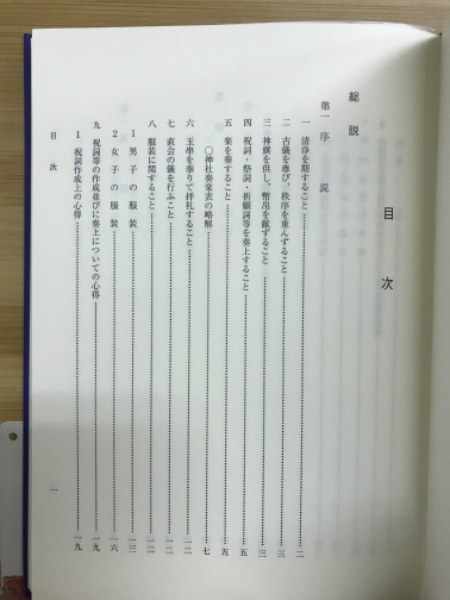 目次
総説
第一 序説
一 清浄を期すること……二
二 古儀を尊び、秩序を重んずること……三
三 神饌を供し、幣帛を献ずること……三
四 祝詞・祭詞・祈願詞等を奏上すること……五
五 楽を奏すること……五
〇神社奏楽表の略解……七
六 玉串を奉りて拝礼すること……一二
七 直会の儀を行ふこと……一二
八 服装に関すること……一二
1 男子の服装……一三
2 女子の服装……一六
九 祝詞等の作成並びに奏上についての心得……一九
1 祝詞作成上の心得……一九
目次
一